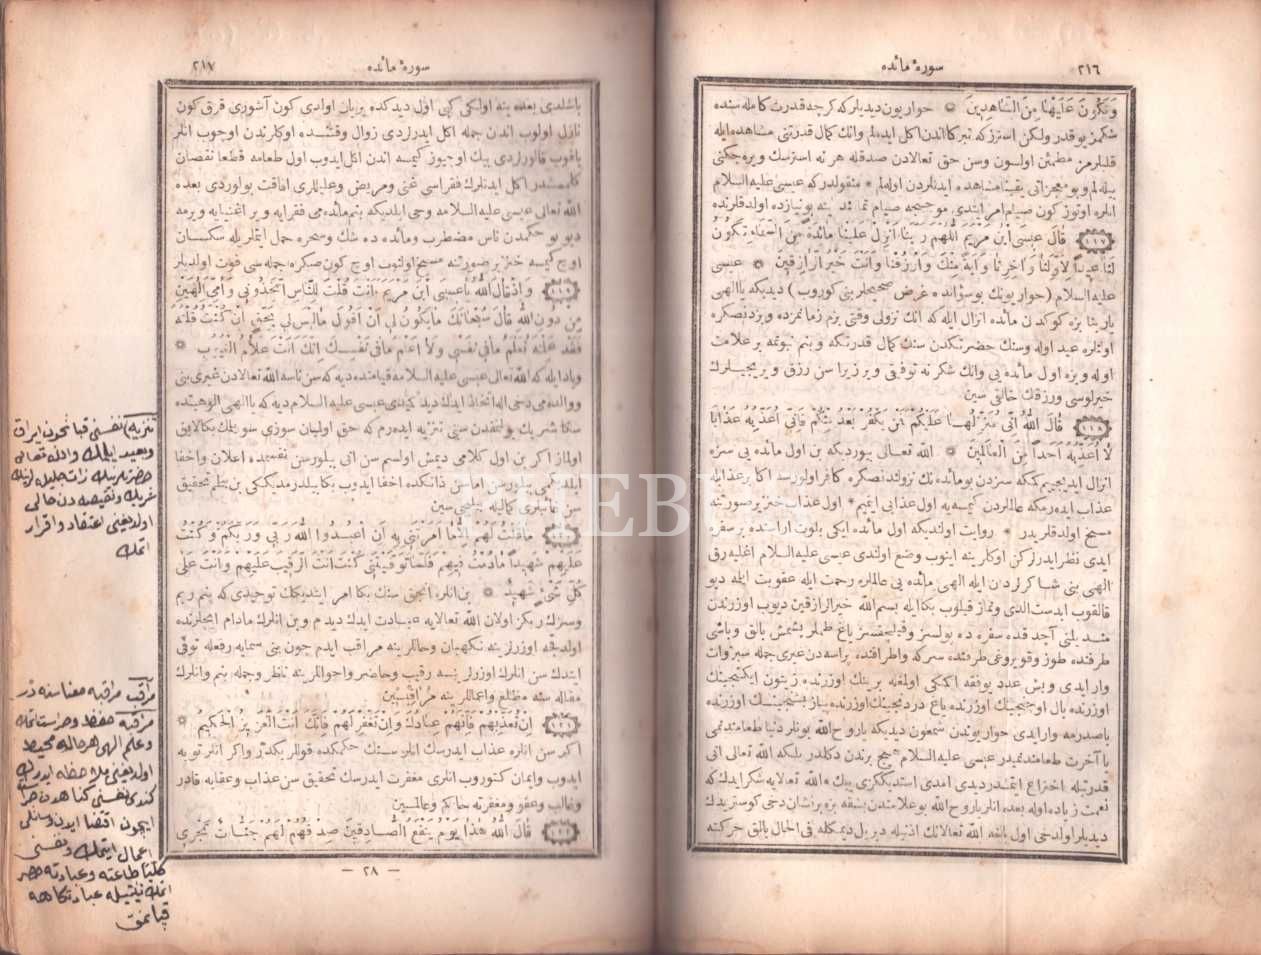 ٢١٦
سورهٔ مائده
وَنَكُونَ عَلَيْهَا مِنَ الشَّاهِدِينَ حواريون ديديلر كه كرچه قدرت كامله سنده
شكمز يوقدر ولكن استرز كه تبركا اندن اكل ايده لم وانك كمال قدرتنى مشاهده ايله
قلبلرمز مطمئن اولسون وسن حق تعالادن صدقله هر نه استرسك ويره جكنى
بيله لم وبو معجزاتى يقينا مشاهده ايدنلردن اوله لم * منقولدر كه عيسى عليه السلام
انلره اوتوز كون صيام امر ايتدى موجبجه صيام
١١٧ قَالَ عِيسَى ابْنُ مَرْيَمَ اللّٰهُمَّ رَبَّنَا اَنْزِلْ عَلَيْنَا مَائِدَةً مِنَ السَّمَاءِ تَكُونُ
لَنَا عِيداً لِاَوَّلِنَا وَاٰخِرِنَا وَاٰيَةً مِنْكَ وَارْزُقْنَا وَاَنْتَ خَيْرُ الرَّازِقِينَ عيسى
عليه السلام (حواريونك بو سؤالده غرض صحيحلرينى كوروب) ديديكه يا الهى
يا ربنا بزه كوكدن مائده انزال ايله كه انك نزولى وقتى بزم زمانمزده وبزدنصكره
اونلره عيد اوله وسنك حضرتكدن سنك كمال قدرتكه وبنم نبوتمه بر علامت
اوله وبزه اول مائده يى وانك شكرنه توفيقى وير زيرا سن رزق ويريجيلرك
خيرلوسى ورزقك خالقى سين
١١٨ قَالَ اللّٰهُ اِنِّى مُنَزِّلُهَا عَلَيْكُمْ فَمَنْ يَكْفُرْ بَعْدُ مِنْكُمْ فَاِنِّى اُعَذِّبُهُ عَذَاباً
لَا اُعَذِّبُهُ اَحَداً مِنَ الْعَالَمِينَ الله تعالى بيورديكه بن اول مائده يى سزه
انزال ايديجييم كيمكه سزدن بو مائده نك نزولندنصكره كافر اولورسه اكا بر عذابله
عذاب ايده رمكه عالملردن كيمسه يه اول عذابى ايتمم * اول عذاب خنزير صورتنه
مسخ اولدقلريدر * روايت اولنديكه اول مائده ايكى بلوت اراسنده بر سفره
ايدى نظر ايدرلركن اوكلرينه اينوب وضع اولندى عيسى عليه السلام اغليه رق
الهى بنى شاكرلردن ايله الهى مائده يى عالملره رحمت ايله عقوبت ايلمه ديو
قالقوب ابدست الدى ونماز قيلوب بكا ايله بسم الله خير الرازقين ديوب اوزرندن
منديلنى آچدقده سفره ده پولسز وقيلچقسز ياغ طملر پشمش بالق وباشى
طرفنده طوز وقويروغى طرفنده سركه واطرافنده پراسه دن غيرى جمله سبزوات
وار ايدى وبش عدد يوفقه اكمكى اولمغله برينك اوزرنده زيتون ايكنجينك
اوزرنده بال اوچنجينك اوزرنده ياغ دردنجينك اوزرنده پينر بشنجينك اوزرنده
باصدرمه وار ايدى حواريوندن شمعون ديديكه يا روح الله بونلر دنيا طعامندنمى
يا آخرت طعامندنميدر عيسى عليه السلام هيچ برندن دكلدر بلكه الله تعالى انى
قدرتيله اختراع ايتمشدر ديدى امدى استدككزى ييك الله تعالايه شكر ايدك كه
نعمت زياده اوله بعده انلر يا روح الله بو علامتدن بشقه بزه برنشان دخى كوستر ديك
ديديلر اولدخى اول بالغه الله تعالانك اذنيله ديرل ديمكله فى الحال بالق حركته
٢١٧
سورهٔ مائده
باشلدى بعده ينه اولكى كبى اول ديدكده بريان اولدى كون آشورى قرق كون
نازل اولوب اندن جمله اكل ايدرلردى زوال وقتنده اوكلرندن اوچوب انلر
باقوب قالورلردى بيك اوچيوز كيمسه اندن اكل ايدوب اول طعامه قطعا نقصان
كلمامشدر اكل ايدنلرك فقراسى غنى ومريض وعليللرى افاقت بولوردى بعده
الله تعالى عيسى عليه السلامه وحى ايلديكه بنم مائده مى فقرايه وير اغنيايه ويرمه
ديو بو حكمدن ناس مضطرب ومائده ده شك وسحره حمل ايتملريله سكسان
اوچ كيمسه خنزير صورتنه مسخ اولنوب اوچ كون صكره جمله سى فوت اولديلر
١١٩ وَاِذْ قَالَ اللّٰهُ يَا عِيسَى ابْنَ مَرْيَمَ ءَاَنْتَ قُلْتَ لِلنَّاسِ اتَّخِذُونِى وَاُمِّىَ اِلٰهَيْنِ
مِنْ دُونِ اللّٰهِ قَالَ سُبْحَانَكَ مَا يَكُونُ لِى اَنْ اَقُولَ مَا لَيْسَ لِى بِحَقٍّ اِنْ كُنْتُ قُلْتُهُ
فَقَدْ عَلِمْتَهُ تَعْلَمُ مَا فِى نَفْسِى وَلَا اَعْلَمُ مَا فِى نَفْسِكَ اِنَّكَ اَنْتَ عَلَّامُ الْغُيُوبِ
وياد ايله كه الله تعالى عيسى عليه السلامه قيامتده ديه كه سن ناسه الله تعالادن غيرى بنى
ووالده مى دخى اله اتخاذ ايدك ديدكميدى عيسى عليه السلام ديه كه يا الهى الوهيتده
سكا شريك بولنمقدن سنى تنزيه ايده رم كه حق اوليان سوزى سويلمك بكا لايق
اولماز اكر بن اول كلامى ديمش اولسم سن انى بيلورسن نفسمده اعلان واخفا
ايلديكمى بيلورسن اما سن ذاتكده اخفا ايدوب بكا بيلدرمديككى بن بيلم تحقيق
سن غائبلرى كماليله بيليجى سين
١٢٠ مَا قُلْتُ لَهُمْ اِلَّا مَا اَمَرْتَنِى بِهِ اَنِ اعْبُدُوا اللّٰهَ رَبِّى وَرَبَّكُمْ وَكُنْتُ
عَلَيْهِمْ شَهِيداً مَا دُمْتُ فِيهِمْ فَلَمَّا تَوَفَّيْتَنِى كُنْتَ اَنْتَ الرَّقِيبَ عَلَيْهِمْ وَاَنْتَ عَلَى
كُلِّ شَىْءٍ شَهِيدٌ بن انلره انجق سنك بكا امر ايتديكك توحيدى كه بنم ربم
وسزك ربكز اولان الله تعالايه عبادت ايدك ديدم وبن انلرك مادام ايچلرنده
اولدقجه اوزرلرينه نكهبان وحاللرينه مراقب ايدم چون بنى سمايه رفعله توفى
ايتدك سن انلرك اوزرلرينه رقيب وحاضر واحواللرينه ناظر وجمله بنم وانلرك
مقاله سنه مطلع واعماللرينه مراقبسين
١٢١ اِنْ تُعَذِّبْهُمْ فَاِنَّهُمْ عِبَادُكَ وَاِنْ تَغْفِرْ لَهُمْ فَاِنَّكَ اَنْتَ الْعَزِيزُ الْحَكِيمُ
اكر سن انلره عذاب ايدرسك انلر سنك حكمكده قوللريكدر واكر انلر توبه
ايدوب وايمان كتوروب انلرى مغفرت ايدرسك تحقيق سن عذاب وعقابه قادر
وغالب وعفو ومغفرته حاكم وعالمسين
١٢٢ قَالَ اللّٰهُ هٰذَا يَوْمُ يَنْفَعُ الصَّادِقِينَ صِدْقُهُمْ لَهُمْ جَنَّاتٌ تَجْرِى
— ٢٨ —
تنزيه) نفسنى قباحتدن ايراق
وبعيد ايلمك والله تعالى
حضرتلرينك ذات جليله لرينك
شريك ونقيصه دن خالى
اولديغنى اعتقاد واقرار
ايتمك
مراقب مراقبه معناسنه در
مراقبه حفظ وحراست ايتمك
وعلم الهى هر حاله محيط
اولديغنى ملاحظه ايدرك
كندى نفسنى كناهدن
ايچون اقتضا ايدن
اعمال ايتمك ونفسنى
كليا طاعته وعبادته حصر
ايتمك نيتيله عبادتكاهه
قپانمق
PHEBUS